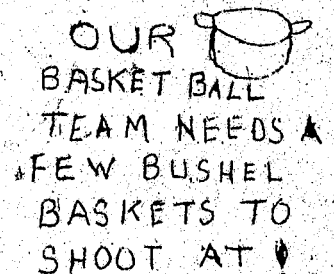 OUR
BASKET BALL
TEAM NEEDS A
FEW BUSHEL
BASKETS TO
SHOOT AT